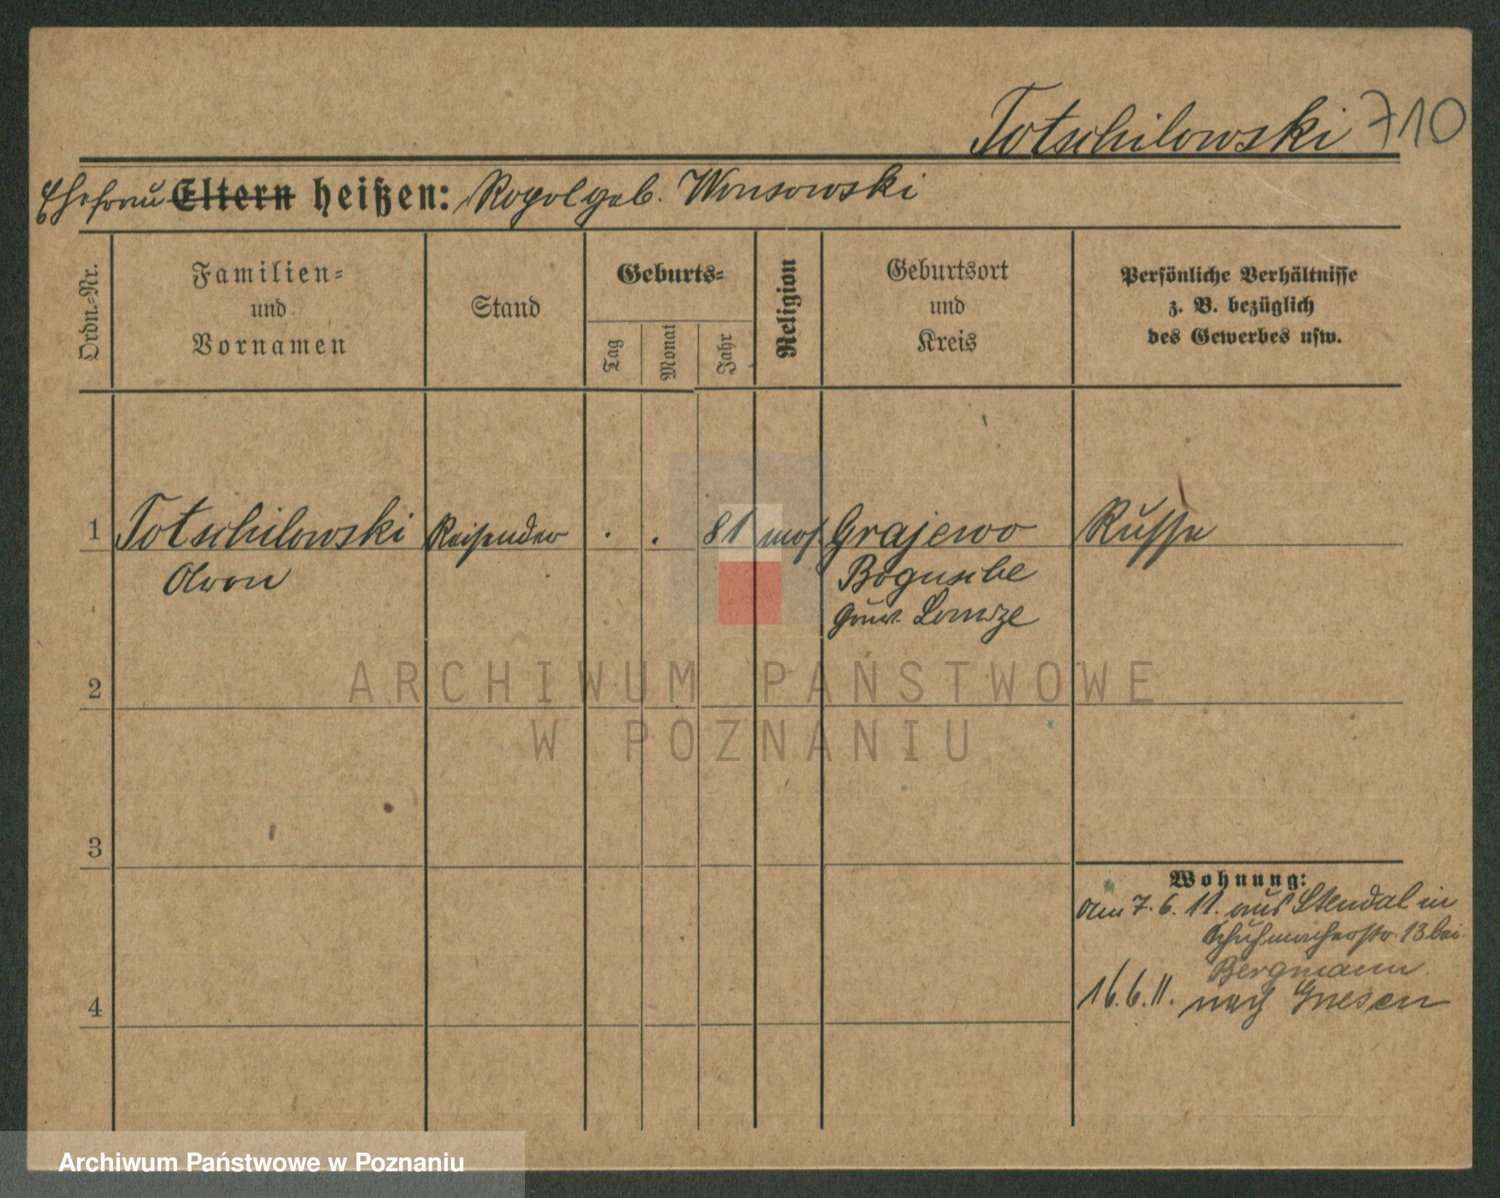 Totschilowski 710
Ehefrau Eltern heißen: Rogol geb. Wonsowski
Ordn.-Nr.
Familien-
und
Vornamen
Stand
Geburts-
Tag
Monat
Jahr
Religion
Geburtsort
und
Kreis
Persönliche Verhältnisse
z. B. bezüglich
des Gewerbes usw.
1 Totschilowski Reisender . . 81 mos Grajewo Russe
Bogusche
Gouv. Lomze
ARCHIWUM PAŃSTWOWE
W POZNANIU
2
3
4
Wohnung:
Am 7. 6. 11. aus Stendal in
Schuhmacherstr. 13 bei
Bergmann.
16. 6. 11. nach Gnesen
Archiwum Państwowe w Poznaniu